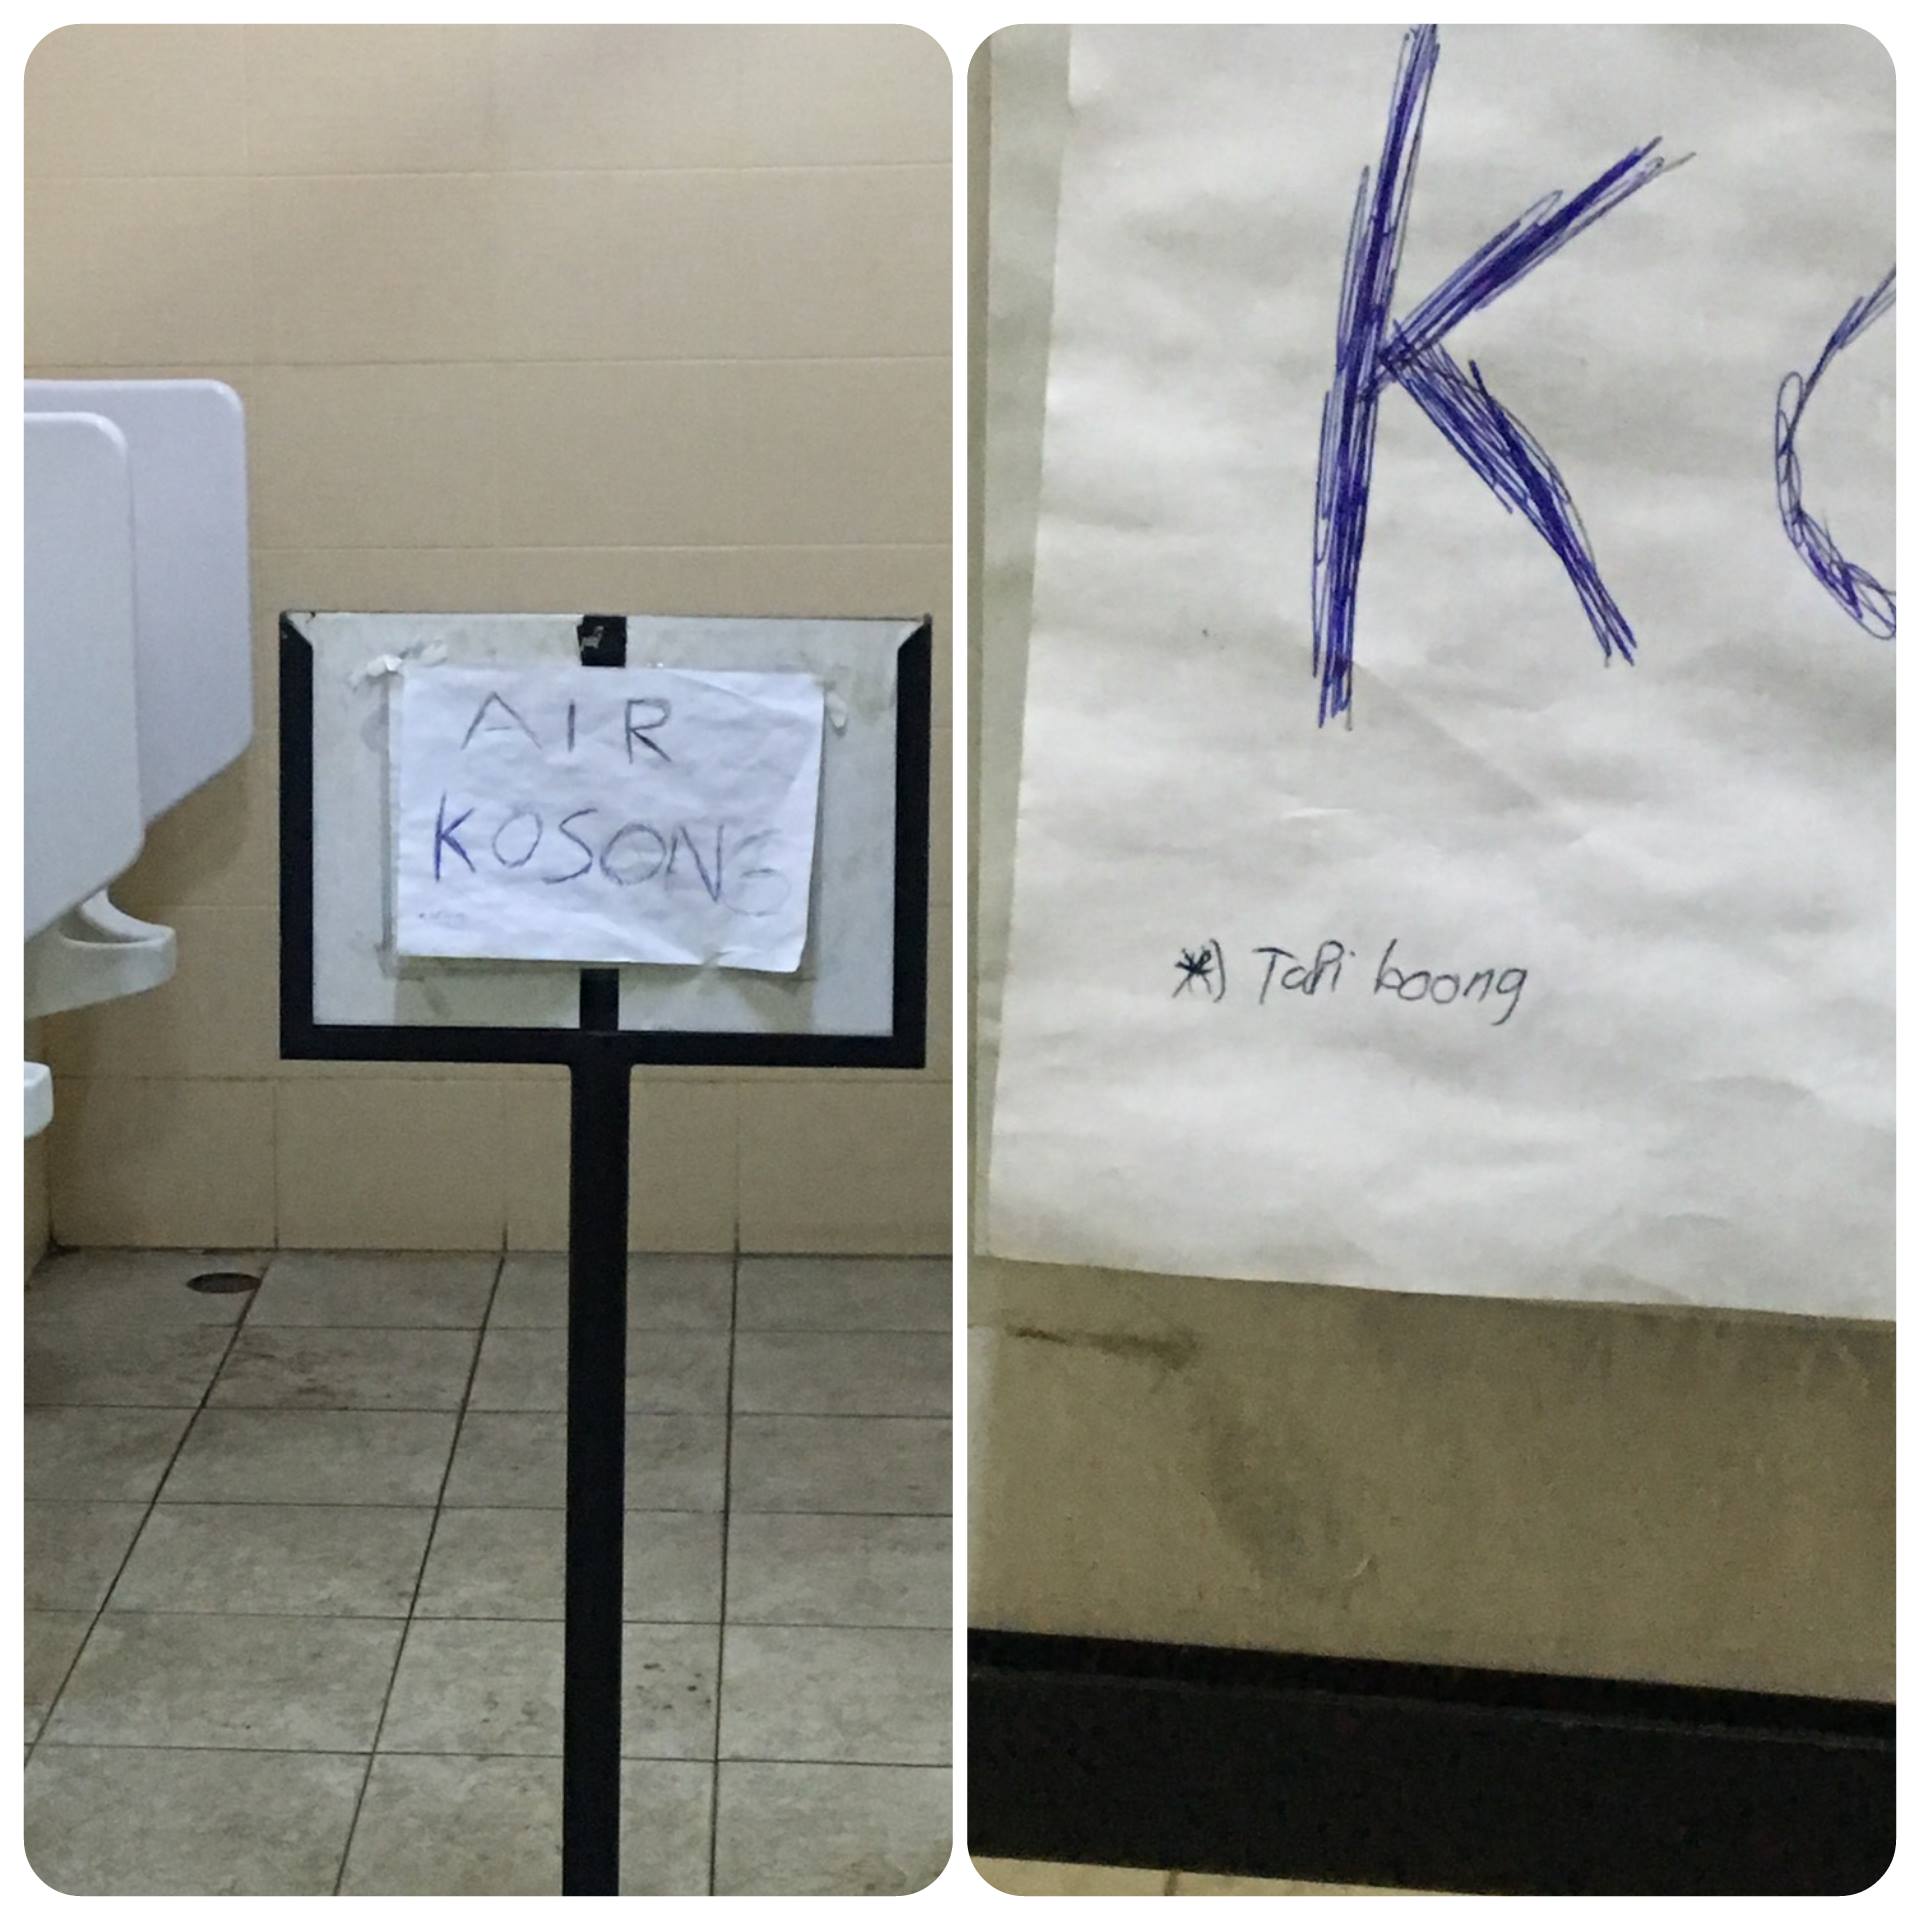 AIR
KOSONG
K
*) Tapi boong